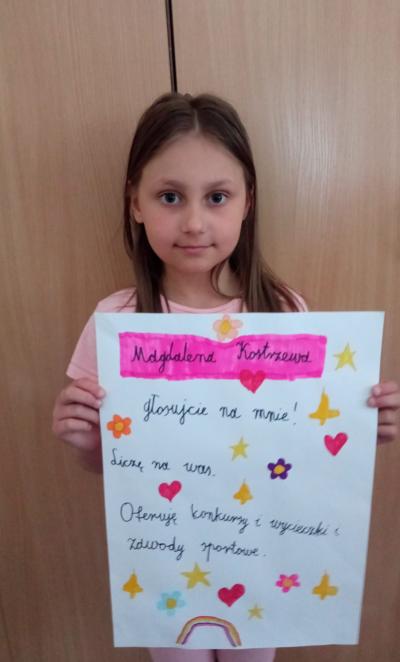 Magdalena Kostrzewa
głosujcie na mnie!
Liczę na was.
Oferuję konkursy i wycieczki i
zawody sportowe.